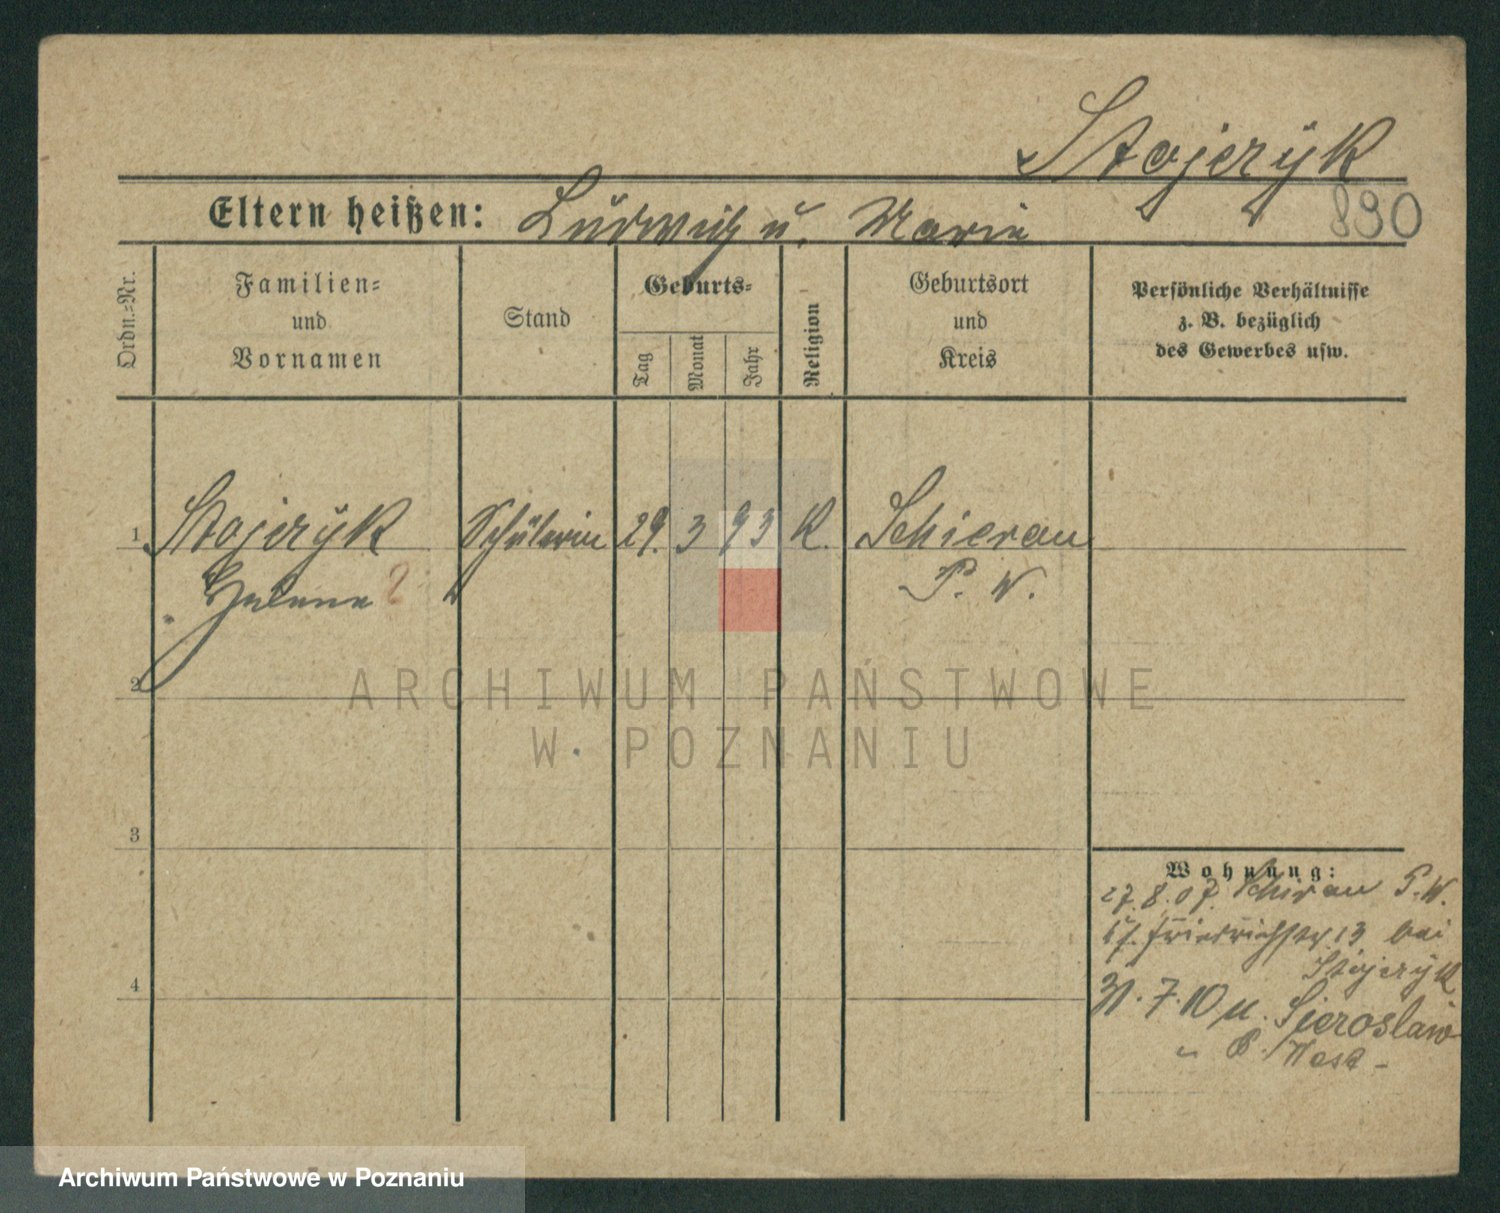 Stojezÿk
Eltern heißen: Ludwig u. Marie
890
Ordn.=Nr.
Familien=
und
Vornamen
Stand
Geburts=
Tag
Monat
Jahr
Religion
Geburtsort
und
Kreis
Persönliche Verhältnisse
z. B. bezüglich
des Gewerbes usw.
1 Stojezÿk Schülerin 29. 3 93 K. Schierau
Helene P. W.
2
ARCHIWUM PAŃSTWOWE
W POZNANIU
3
Wohnung:
27.8.07. Schierau P. W.
Friedrichstr. 13 bei
Stojezÿk
4
31.7.10 Sieroslaw
P. West
Archiwum Państwowe w Poznaniu